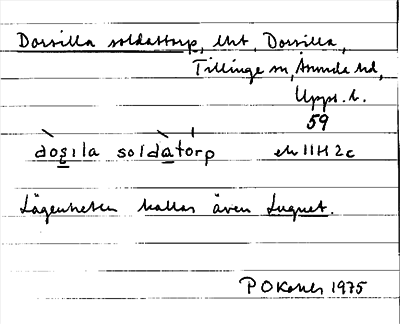 Dorsilla soldattorp, lht, Dorsilla,
Tillinge sn, Åsunda hd,
Upps. l.
59
dòs̱ila soldàtórp ek 11H 2c
Lägenheten kallas även Lugnet.
P O 1975